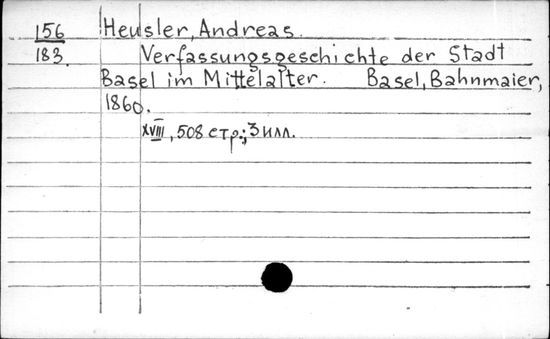 156 Heusler, Andreas.
183. Verfassungsgeschichte der Stadt
Basel im Mittelalter. Basel, Bahnmaier,
1860.
XVIII, 508 стр.; 3 илл.